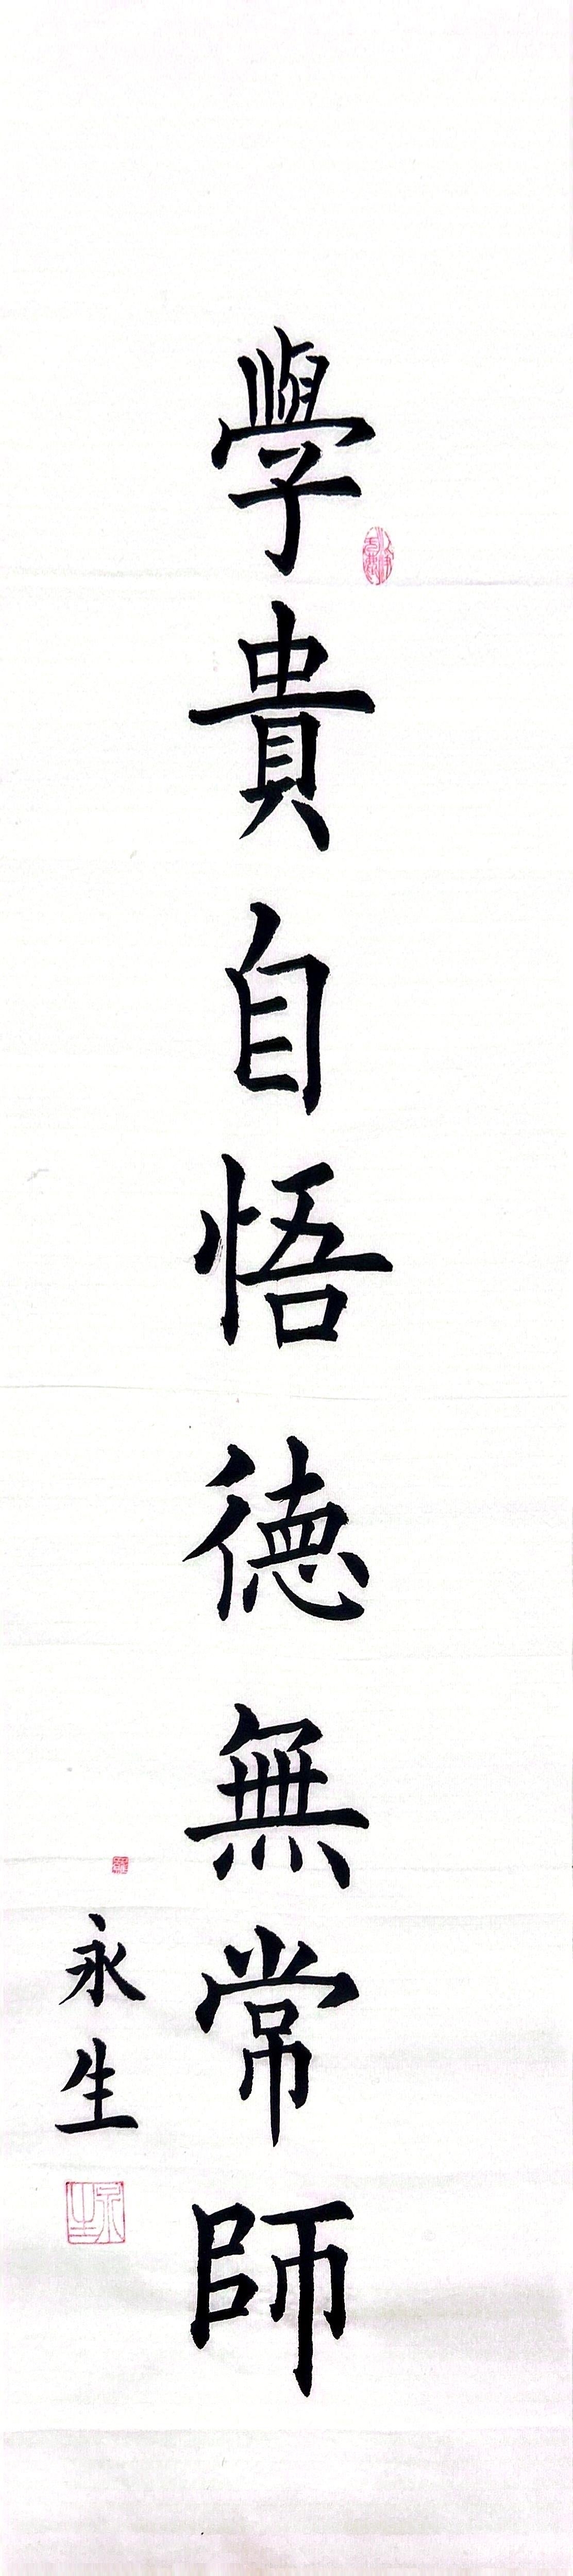 學貴自悟德無常師
永生